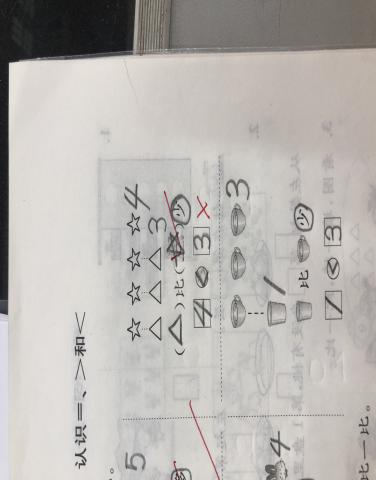 认识=、>和<
☆☆☆☆4
△△△3
(△)比(☆)少
4<3
5
3
1
比 少
1<3
4
比一比。